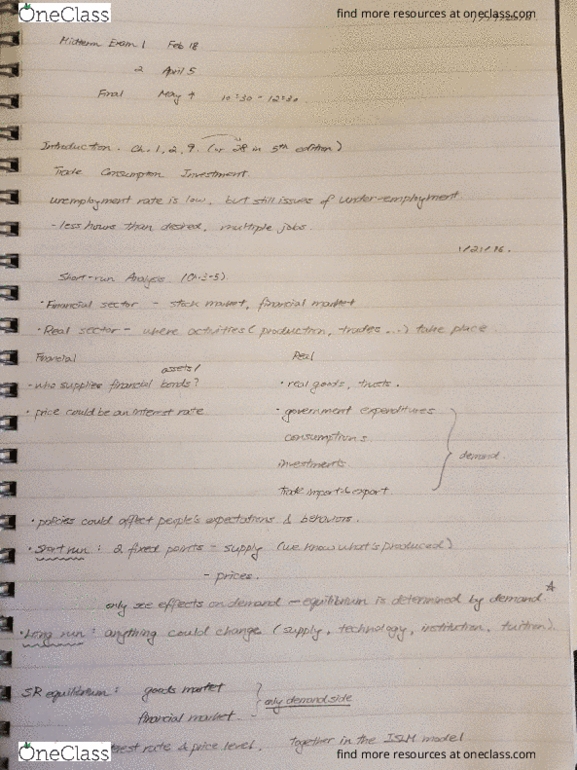 OneClass
find more resources at oneclass.com
Midterm Exam 1 Feb 18
2 April 5
Final May 4 10:30 - 12:30
Introduction. Ch. 1, 2, 9. (or 28 in 5th edition)
Trade Consumption Investment.
unemployment rate is low, but still issues of under-employment
- less hours than desired, multiple jobs.
Short-run Analysis (Ch.3-5)
• Financial sector - stock market, financial market
• Real sector - where activities (production, trades ...) take place
Financial Real
assets/
- who supplies financial bonds? • real goods,
• price could be an interest rate • government expenditures
consumptions
investments
Trade import & export
demand.
• policies could affect people's expectations & behaviors.
• Short run: 2 fixed points - supply (we know what's produced)
- prices.
only see effects on demand - equilibrium is determined by demand
• Long run: anything could change (supply, technology, institution, tuition).
SR equilibrium: goods market
financial market
only demand side
rate & price level. together in the ISLM model
OneClass
find more resources at oneclass.com